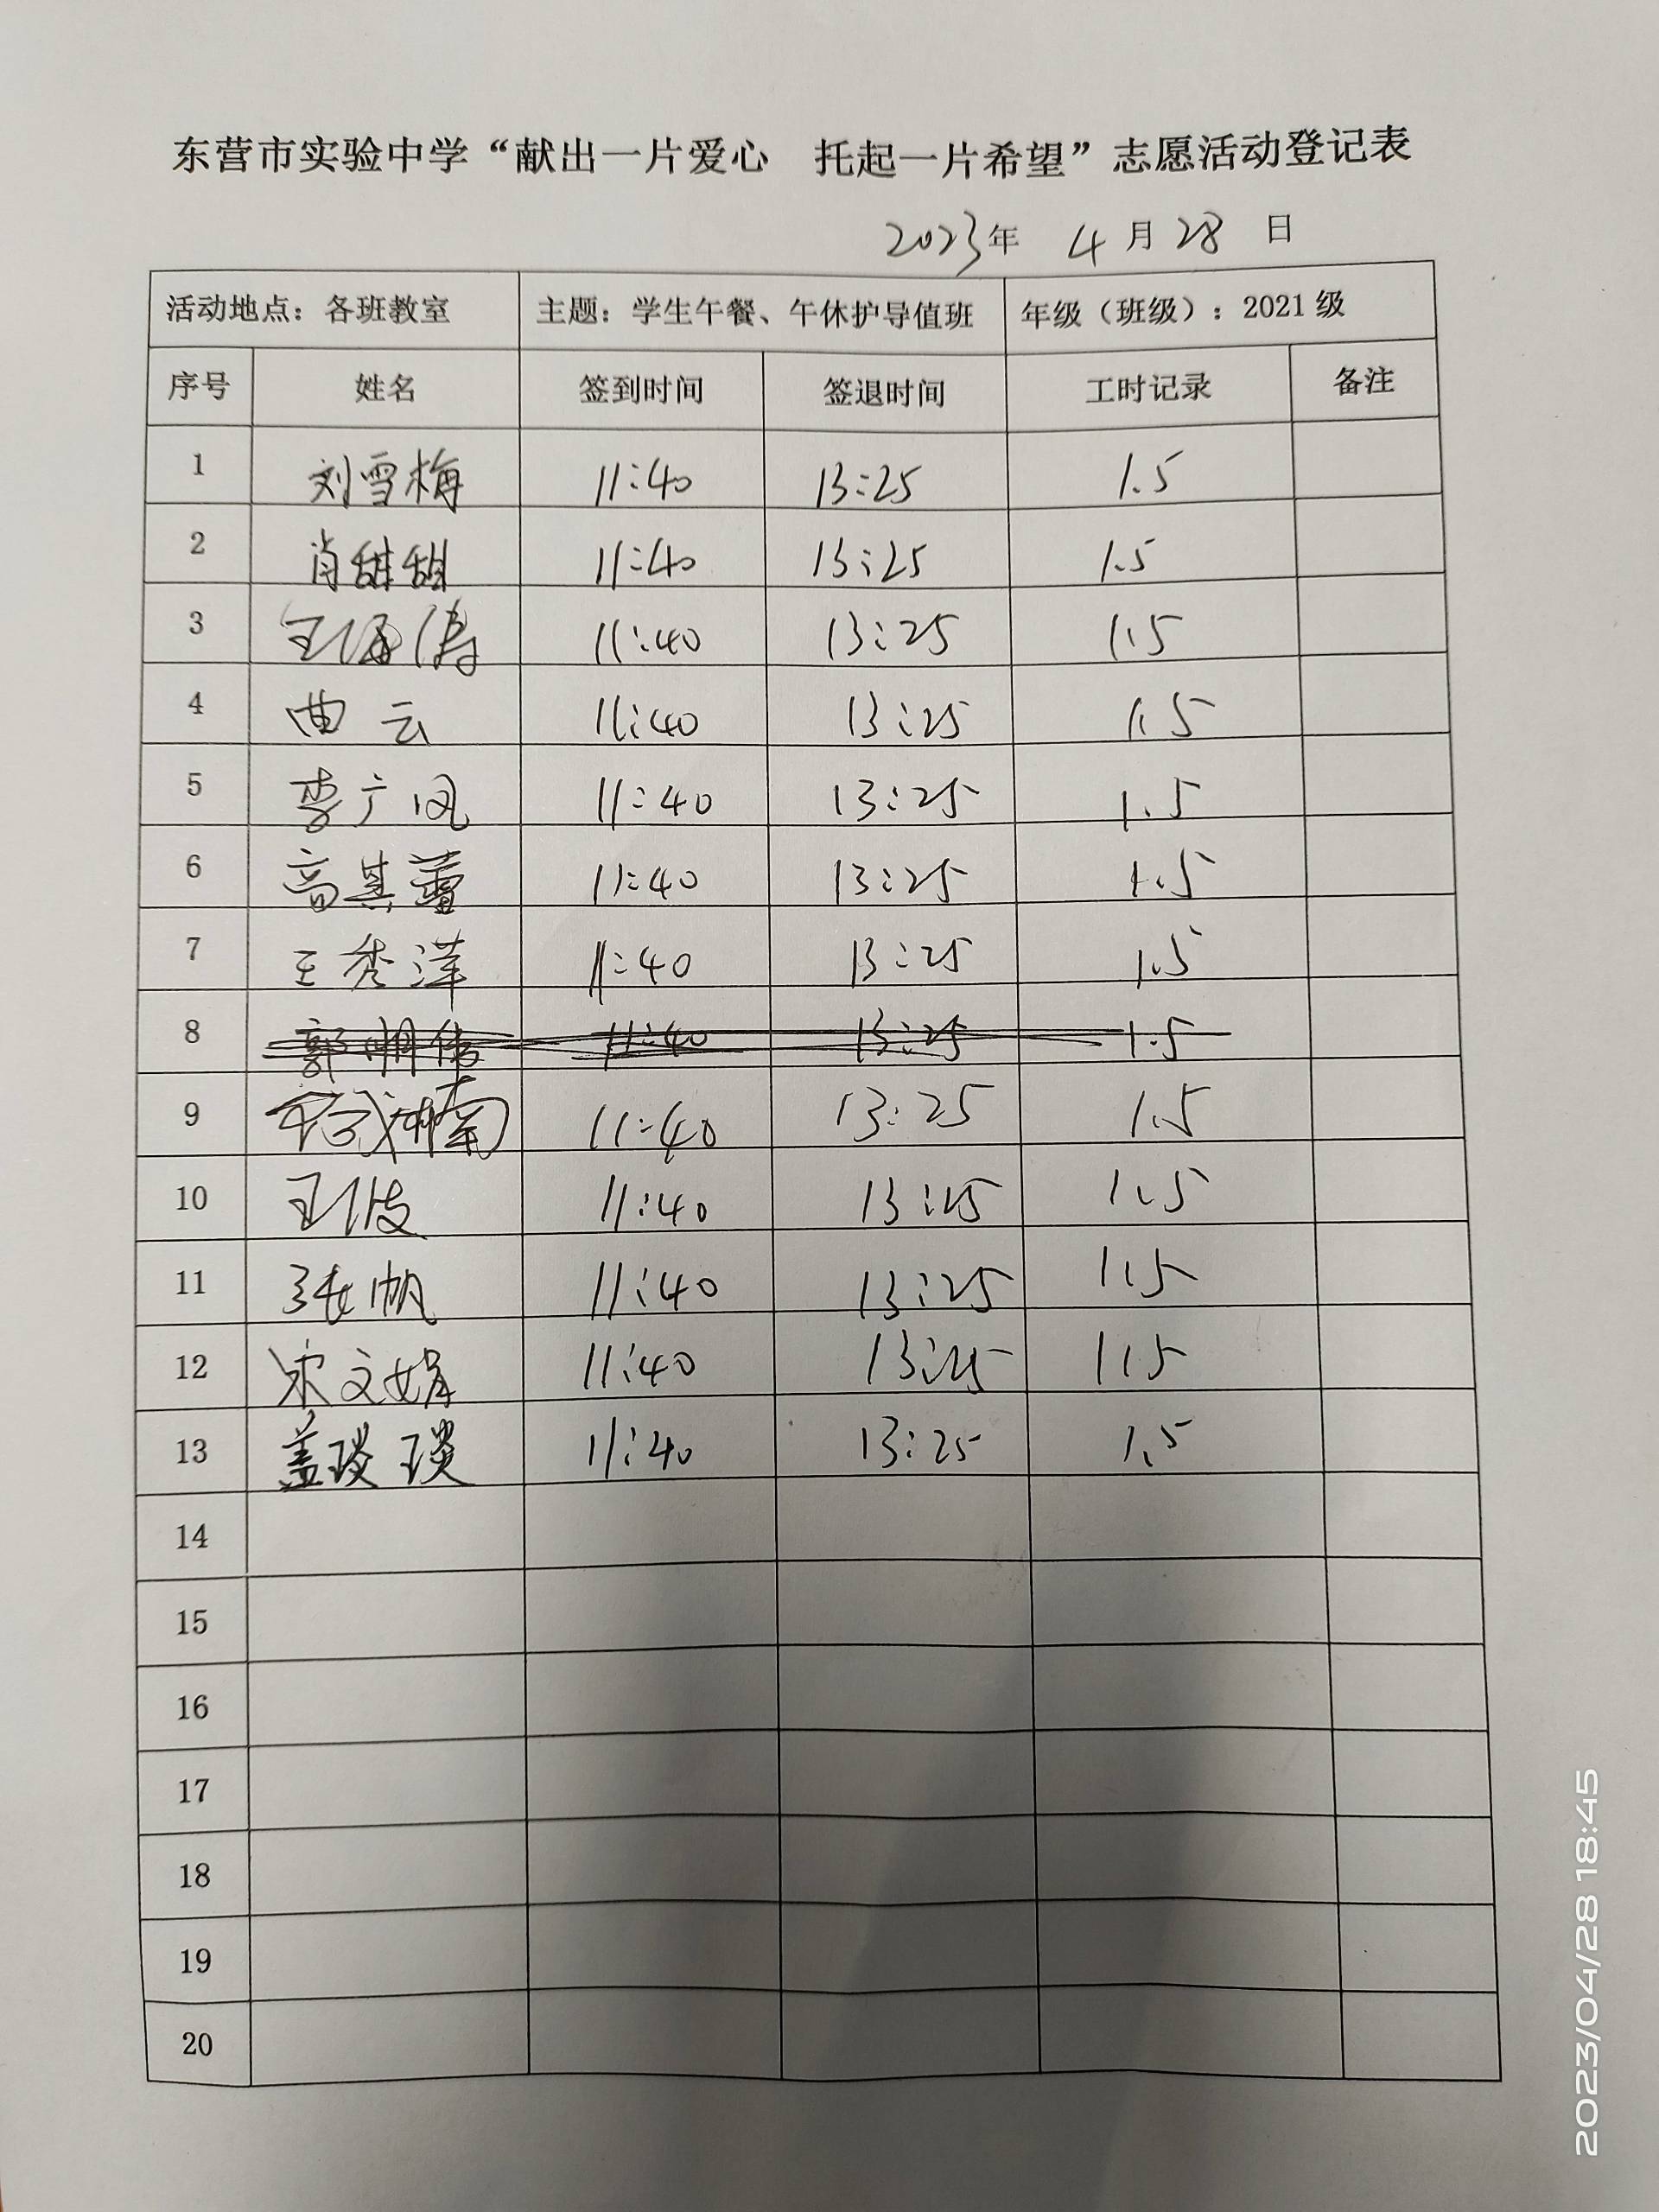 东营市实验中学“献出一片爱心 托起一片希望”志愿活动登记表
2023年 4月28日
活动地点：各班教室 主题：学生午餐、午休护导值班 年级（班级）：2021级
序号 姓名 签到时间 签退时间 工时记录 备注
1 刘雪梅 11:40 13:25 1.5
2 肖甜甜 11:40 13:25 1.5
3 王海涛 11:40 13:25 1.5
4 曲云 11:40 13:25 1.5
5 李广凤 11:40 13:25 1.5
6 高其蕾 11:40 13:25 1.5
7 王秀萍 11:40 13:25 1.5
8 郭明伟 11:40 13:25 1.5
9 11:40 13:25 1.5
10 王波 11:40 13:25 1.5
11 张帆 11:40 13:25 1.5
12 宋文娟 11:40 13:25 1.5
13 盖琰琰 11:40 13:25 1.5
14
15
16
17
18
19
20
2023/04/28 18:45